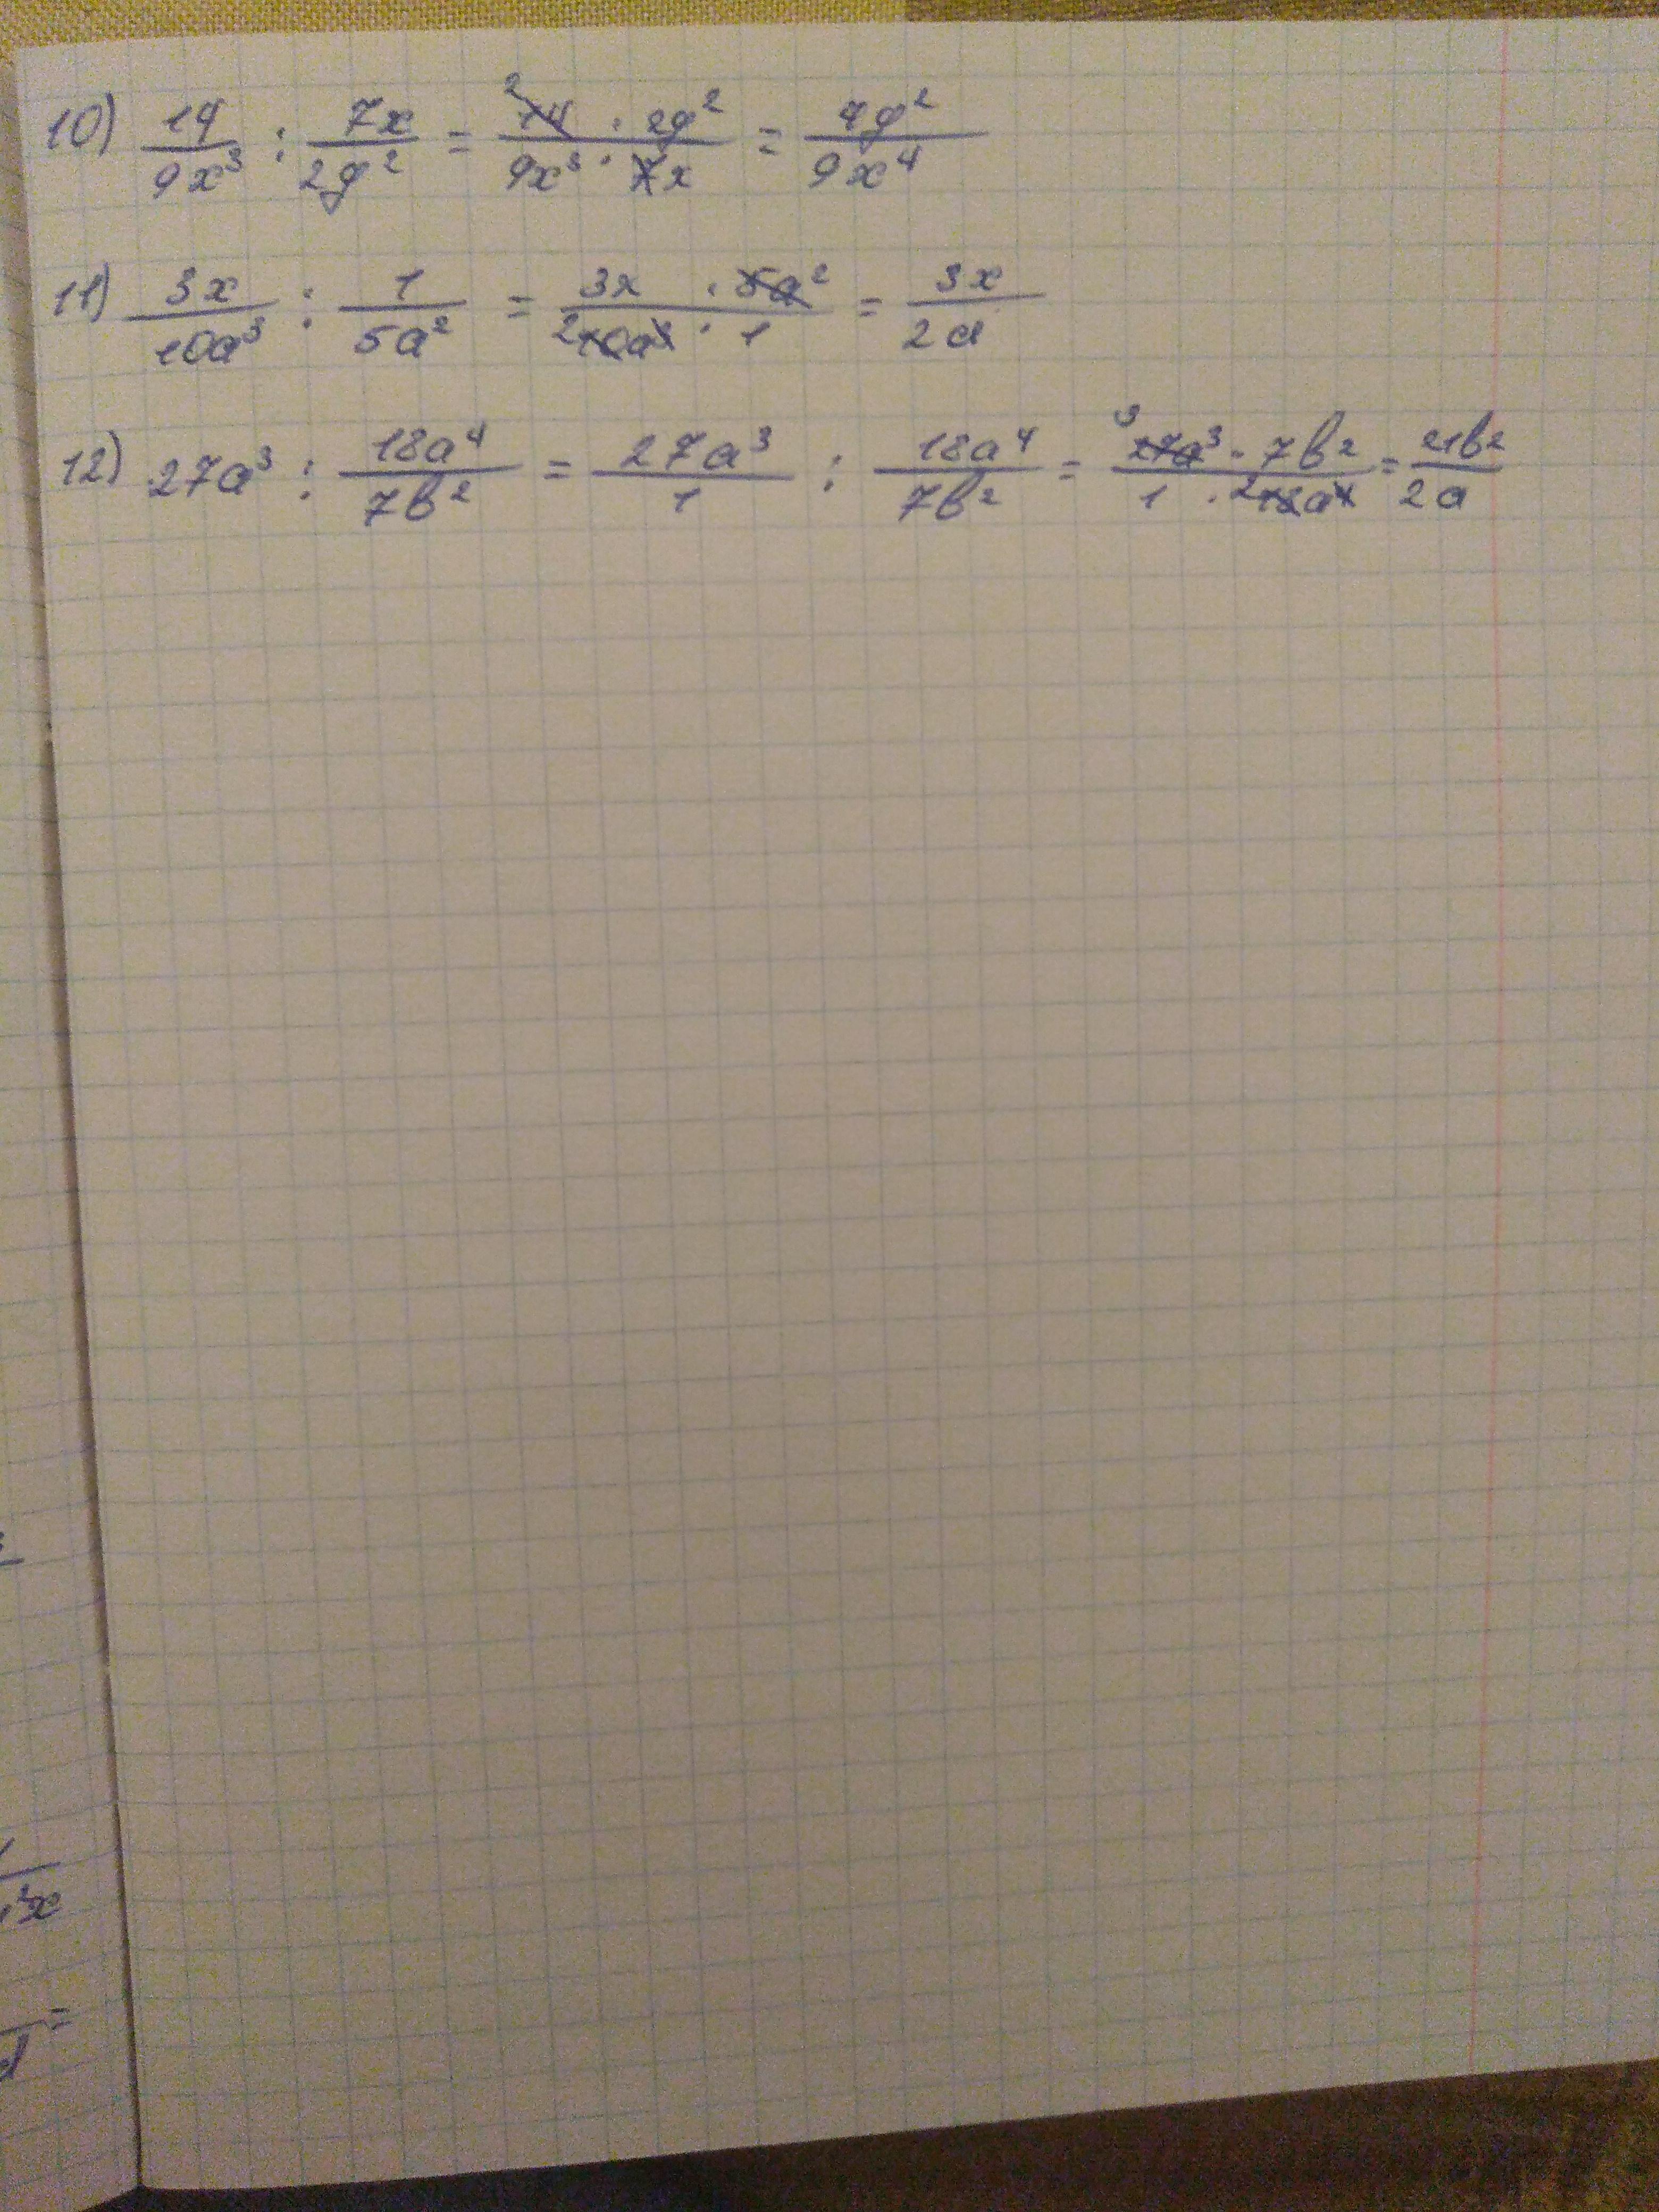 10) 14/9x³ : 7x/2y² = 14 · 2y²/9x³ · 7x = 4y²/9x⁴
11) 3x/10a³ : 1/5a² = 3x · 5a²/10a³ · 1 = 3x/2a
12) 27a³ : 18a⁴/7b² = 27a³/1 : 18a⁴/7b² = 27a³ · 7b²/1 · 18a⁴ = 21b²/2a